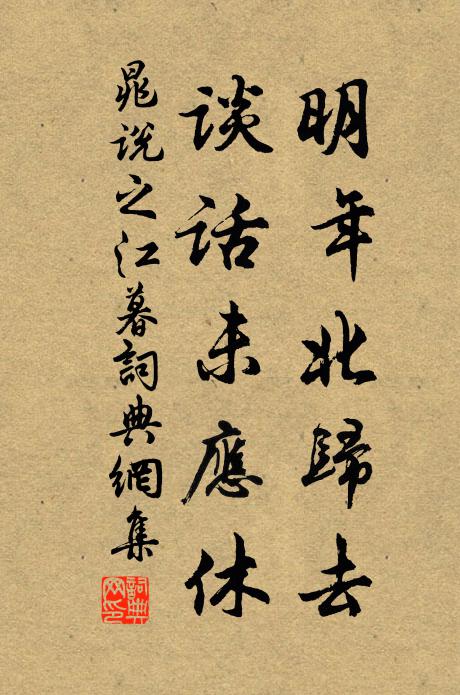 明年北歸去
談話未應休
晁說之江暮詞典網集
詞典网印